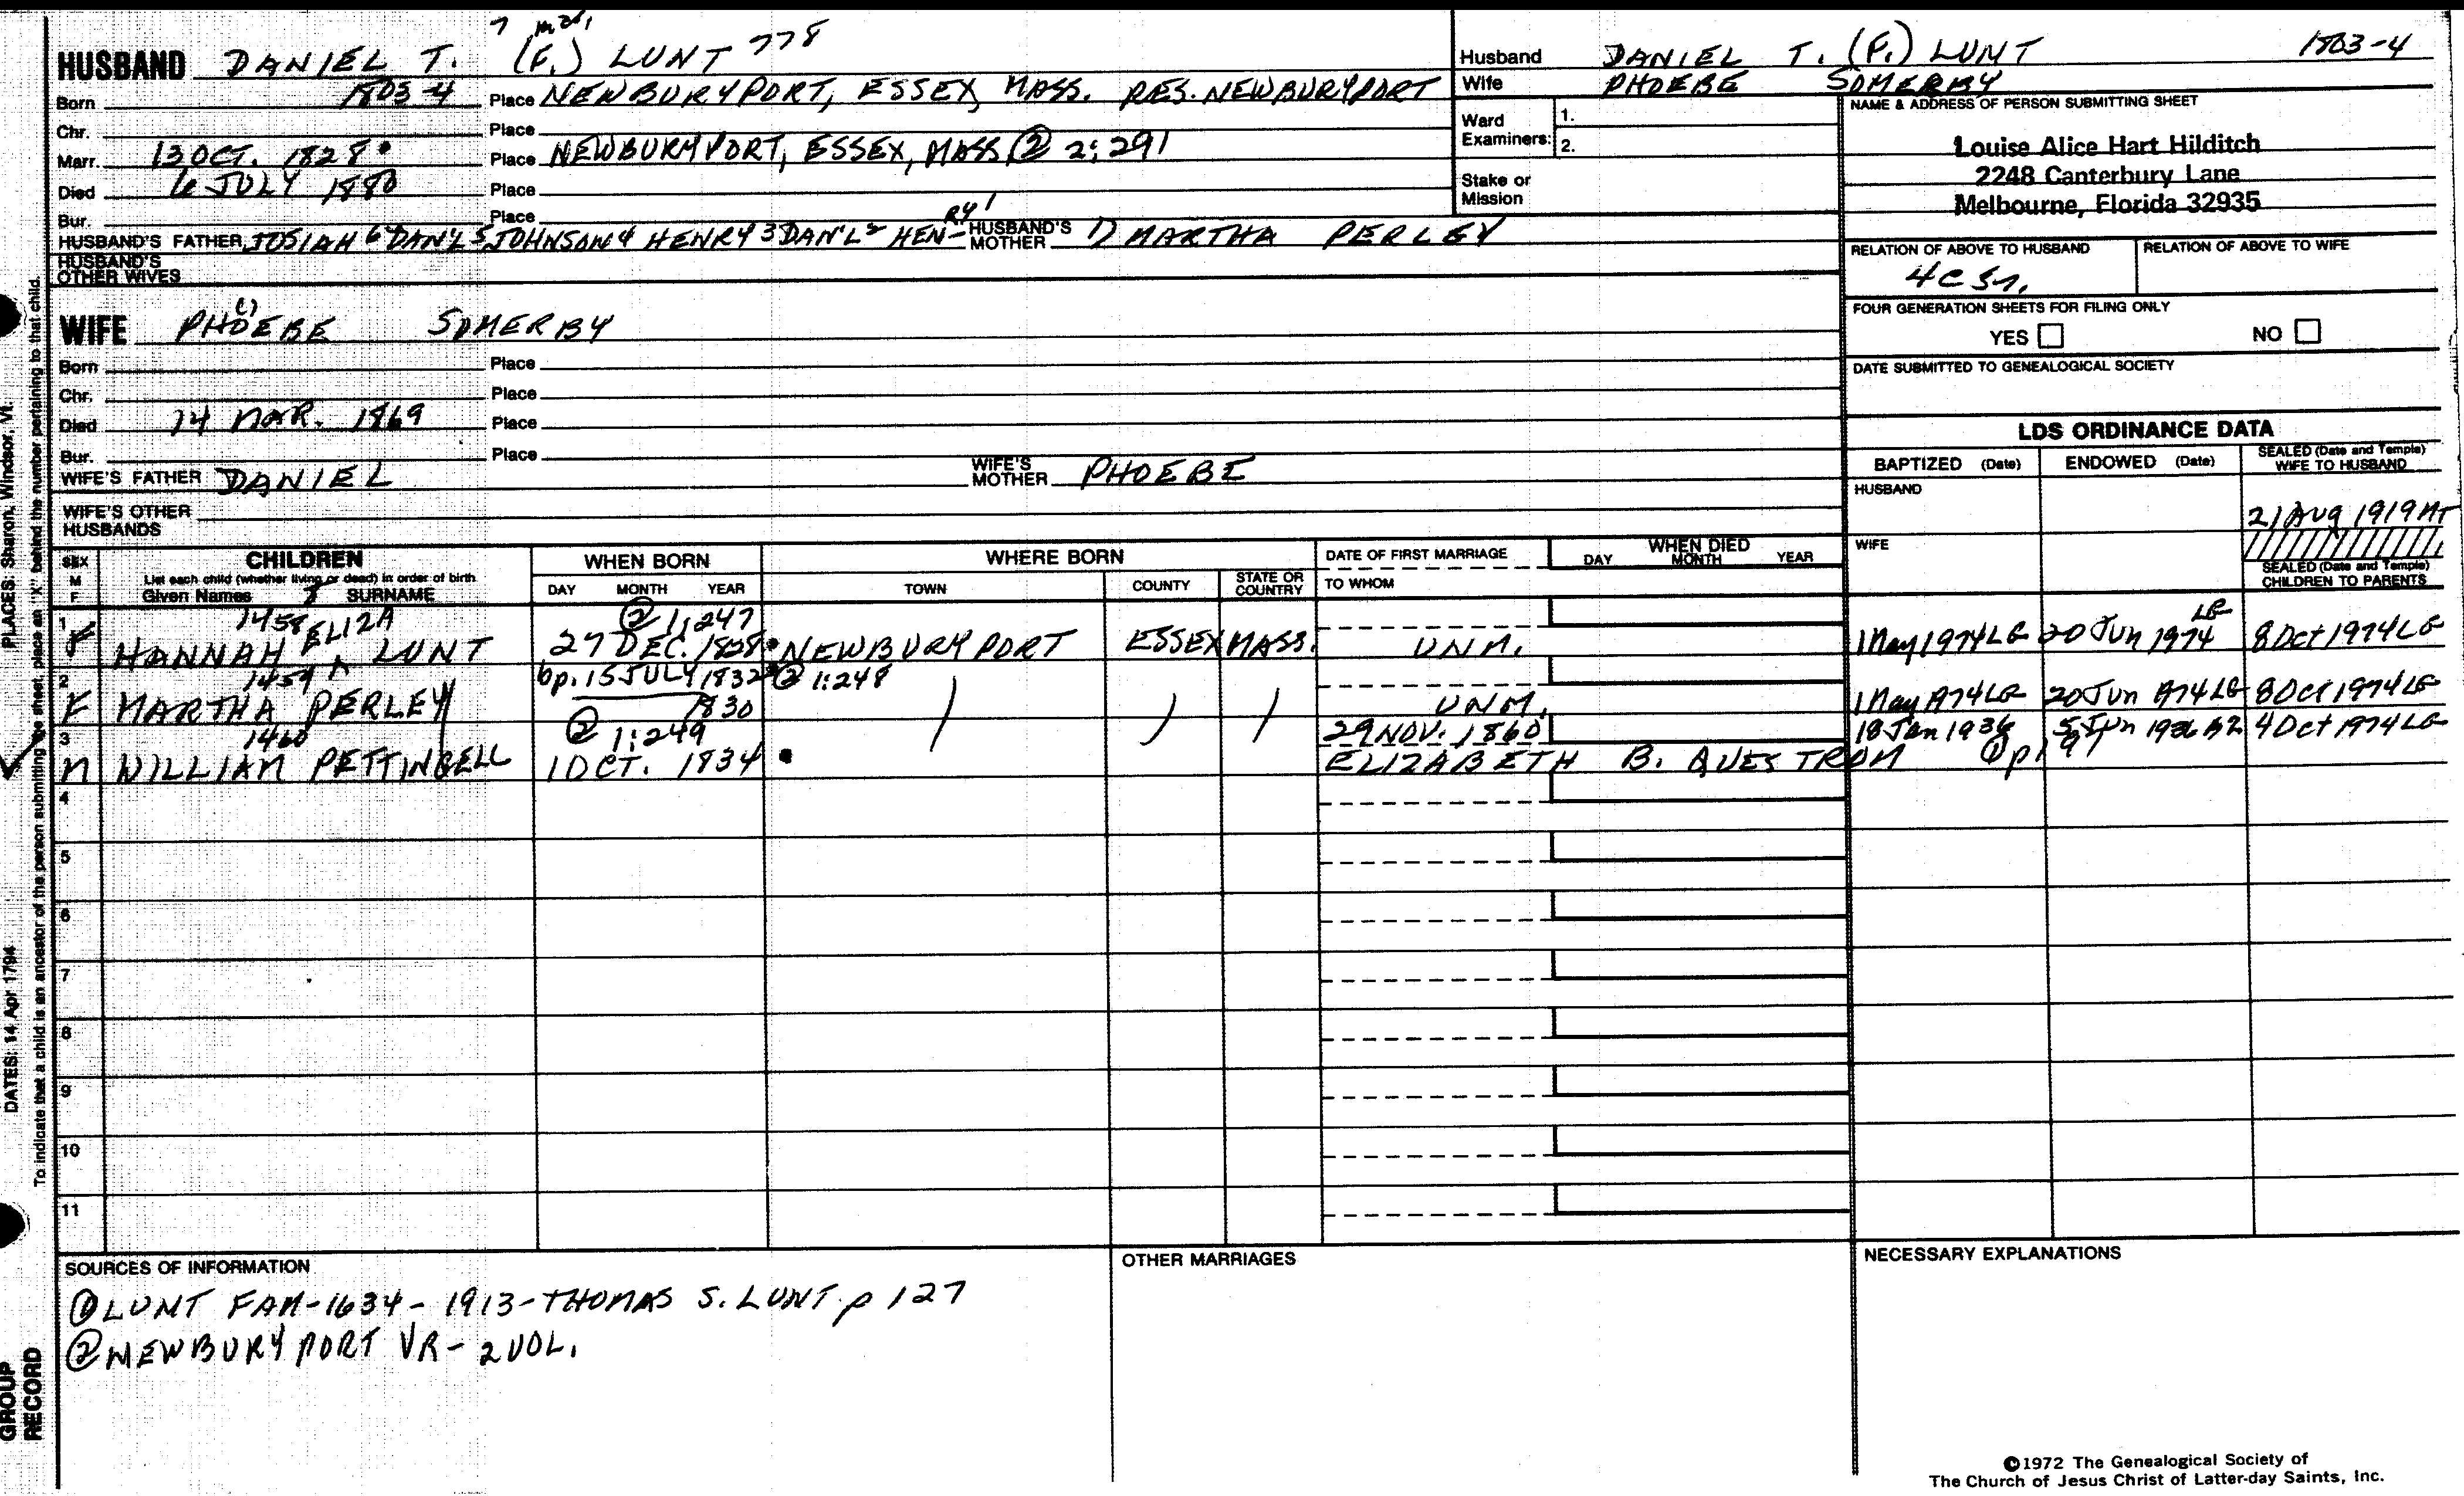 7 m.
HUSBAND DANIEL T. (F.) LUNT 778
Born 1803-4 Place NEWBURYPORT, ESSEX, MASS. RES. NEWBURYPORT
Chr. Place
Marr. 13 OCT. 1828 Place NEWBURYPORT, ESSEX, MASS. ② 2:291
Died 6 JULY 1880 Place
Bur. Place
HUSBAND'S FATHER JOSIAH 6 DAN'L 5 JOHNSON 4 HENRY 3 DAN'L 2 HEN- RY 1 HUSBAND'S MOTHER 1) MARTHA PERLEY
HUSBAND'S
OTHER WIVES
WIFE PHOEBE (1) SOMERBY
Born Place
Chr. Place
Died 14 MAR. 1869 Place
Bur. Place
WIFE'S FATHER DANIEL WIFE'S MOTHER PHOEBE
WIFE'S OTHER
HUSBANDS
Husband DANIEL T. (F.) LUNT 1803-4
Wife PHOEBE SOMERBY
Ward
Examiners:
1.
2.
Stake or
Mission
NAME & ADDRESS OF PERSON SUBMITTING SHEET
Louise Alice Hart Hilditch
2248 Canterbury Lane
Melbourne, Florida 32935
RELATION OF ABOVE TO HUSBAND RELATION OF ABOVE TO WIFE
4 C
FOUR GENERATION SHEETS FOR FILING ONLY
YES NO
DATE SUBMITTED TO GENEALOGICAL SOCIETY
LDS ORDINANCE DATA
BAPTIZED (Date) ENDOWED (Date) SEALED (Date and Temple)
WIFE TO HUSBAND
HUSBAND
21 Aug 1919
WIFE
SEALED (Date and Temple)
CHILDREN TO PARENTS
SEX
M
F
CHILDREN
List each child (whether living or dead) in order of birth
Given Names SURNAME
WHEN BORN
DAY MONTH YEAR
WHERE BORN
TOWN COUNTY STATE OR COUNTRY
DATE OF FIRST MARRIAGE
TO WHOM
WHEN DIED
DAY MONTH YEAR
1 1458 ELIZA ② 1:247
F HANNAH ^ LUNT 27 DEC. 1828 NEWBURYPORT ESSEX MASS. UNM. 1 May 1974 LG 20 Jun 1974 LG 8 Oct 1974 LG
2 1459 bp. 15 JULY 1832 ② 1:248
F MARTHA PERLEY 1830 UNM. 1 May 1974 LG 20 Jun 1974 LG 8 Oct 1974 LG
3 1460 ② 1:249 29 NOV. 1860 18 Jan 1936 5 Jun 1936 AZ 4 Oct 1974 LG
M WILLIAM PETTINGELL 1 OCT. 1834 ELIZABETH B. QUESTROM ① p 197
4
5
6
7
8
9
10
11
SOURCES OF INFORMATION
① LUNT FAM-1634-1913-THOMAS S. LUNT. p 127
② NEWBURYPORT VR-2 VOL.
OTHER MARRIAGES
NECESSARY EXPLANATIONS
©1972 The Genealogical Society of
The Church of Jesus Christ of Latter-day Saints, Inc.
PLACES: Sharon, Windsor, Vt.
DATES: 14 Apr 1794
To indicate that a child is an ancestor of the person submitting the sheet, place an "X" behind the number pertaining to that child.
GROUP
RECORD